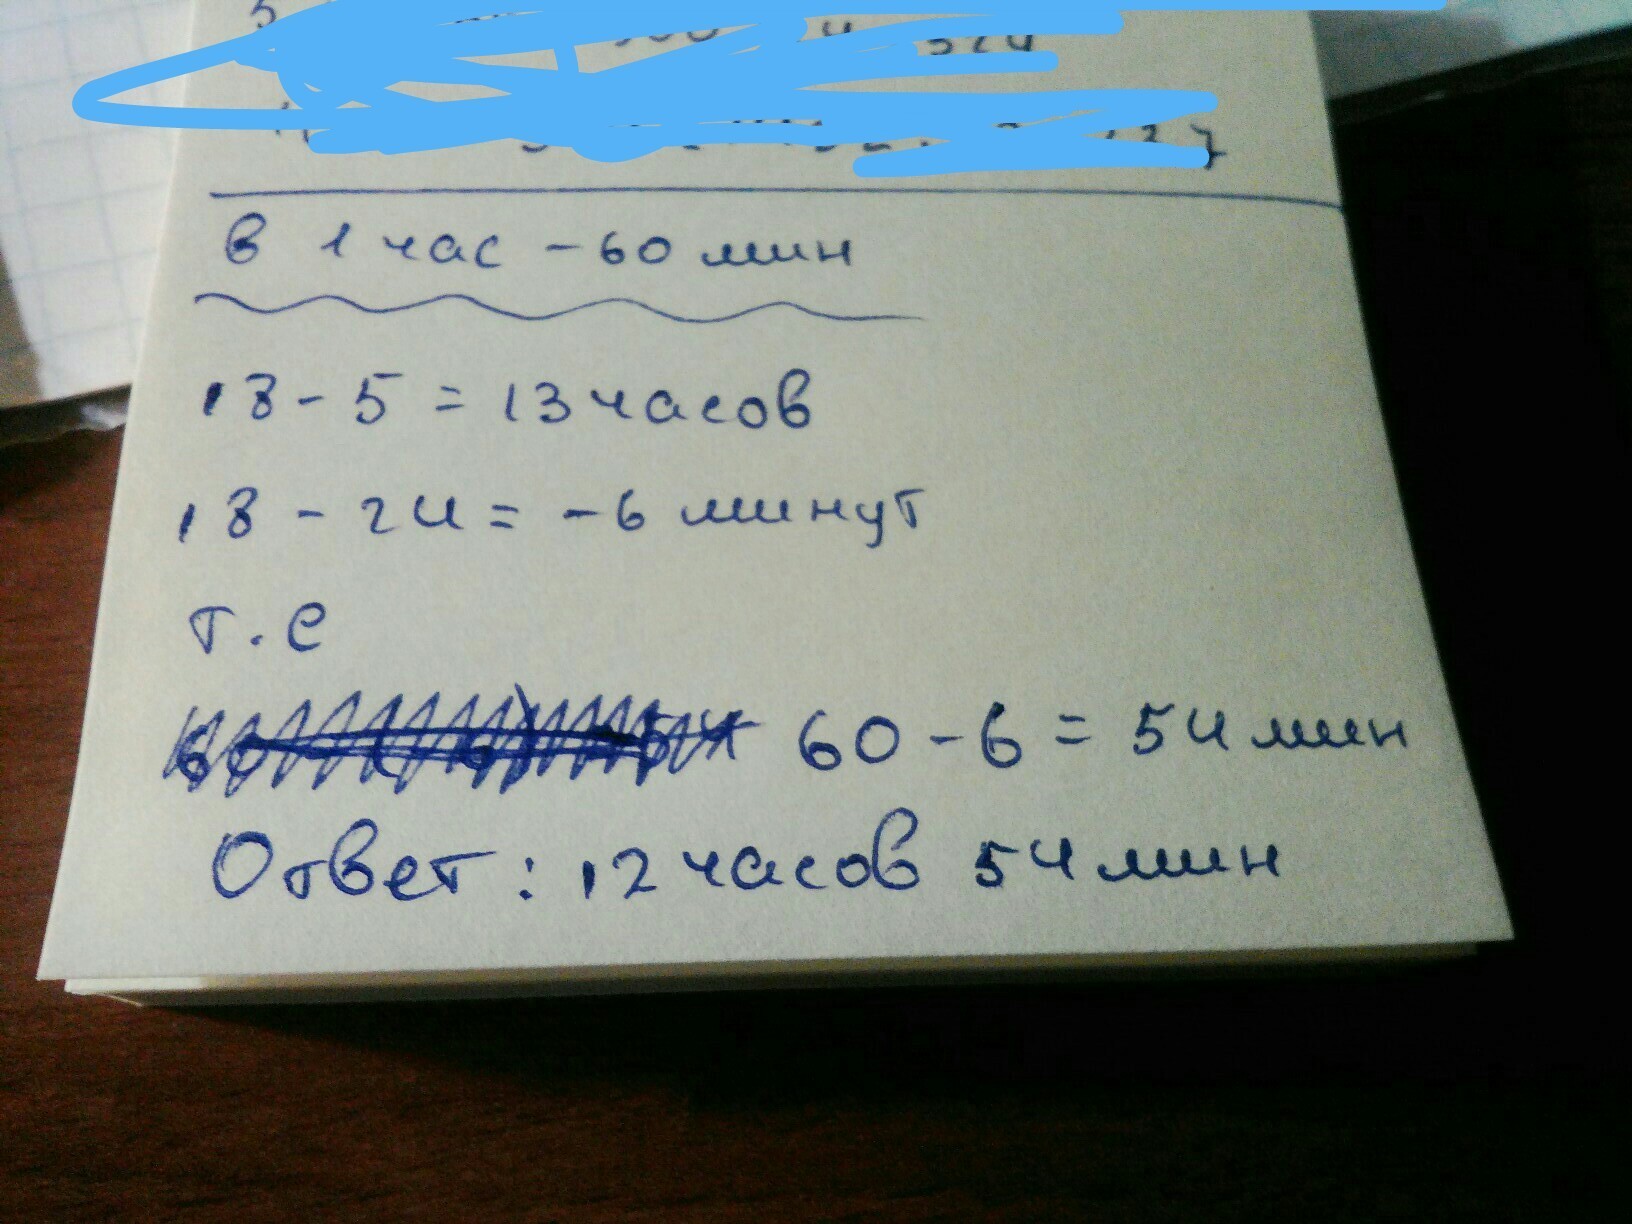 в 1 час - 60 мин
18 - 5 = 13 часов
18 - 24 = -6 минут
т.е
60 - 6 = 54 мин
Ответ: 12 часов 54 мин